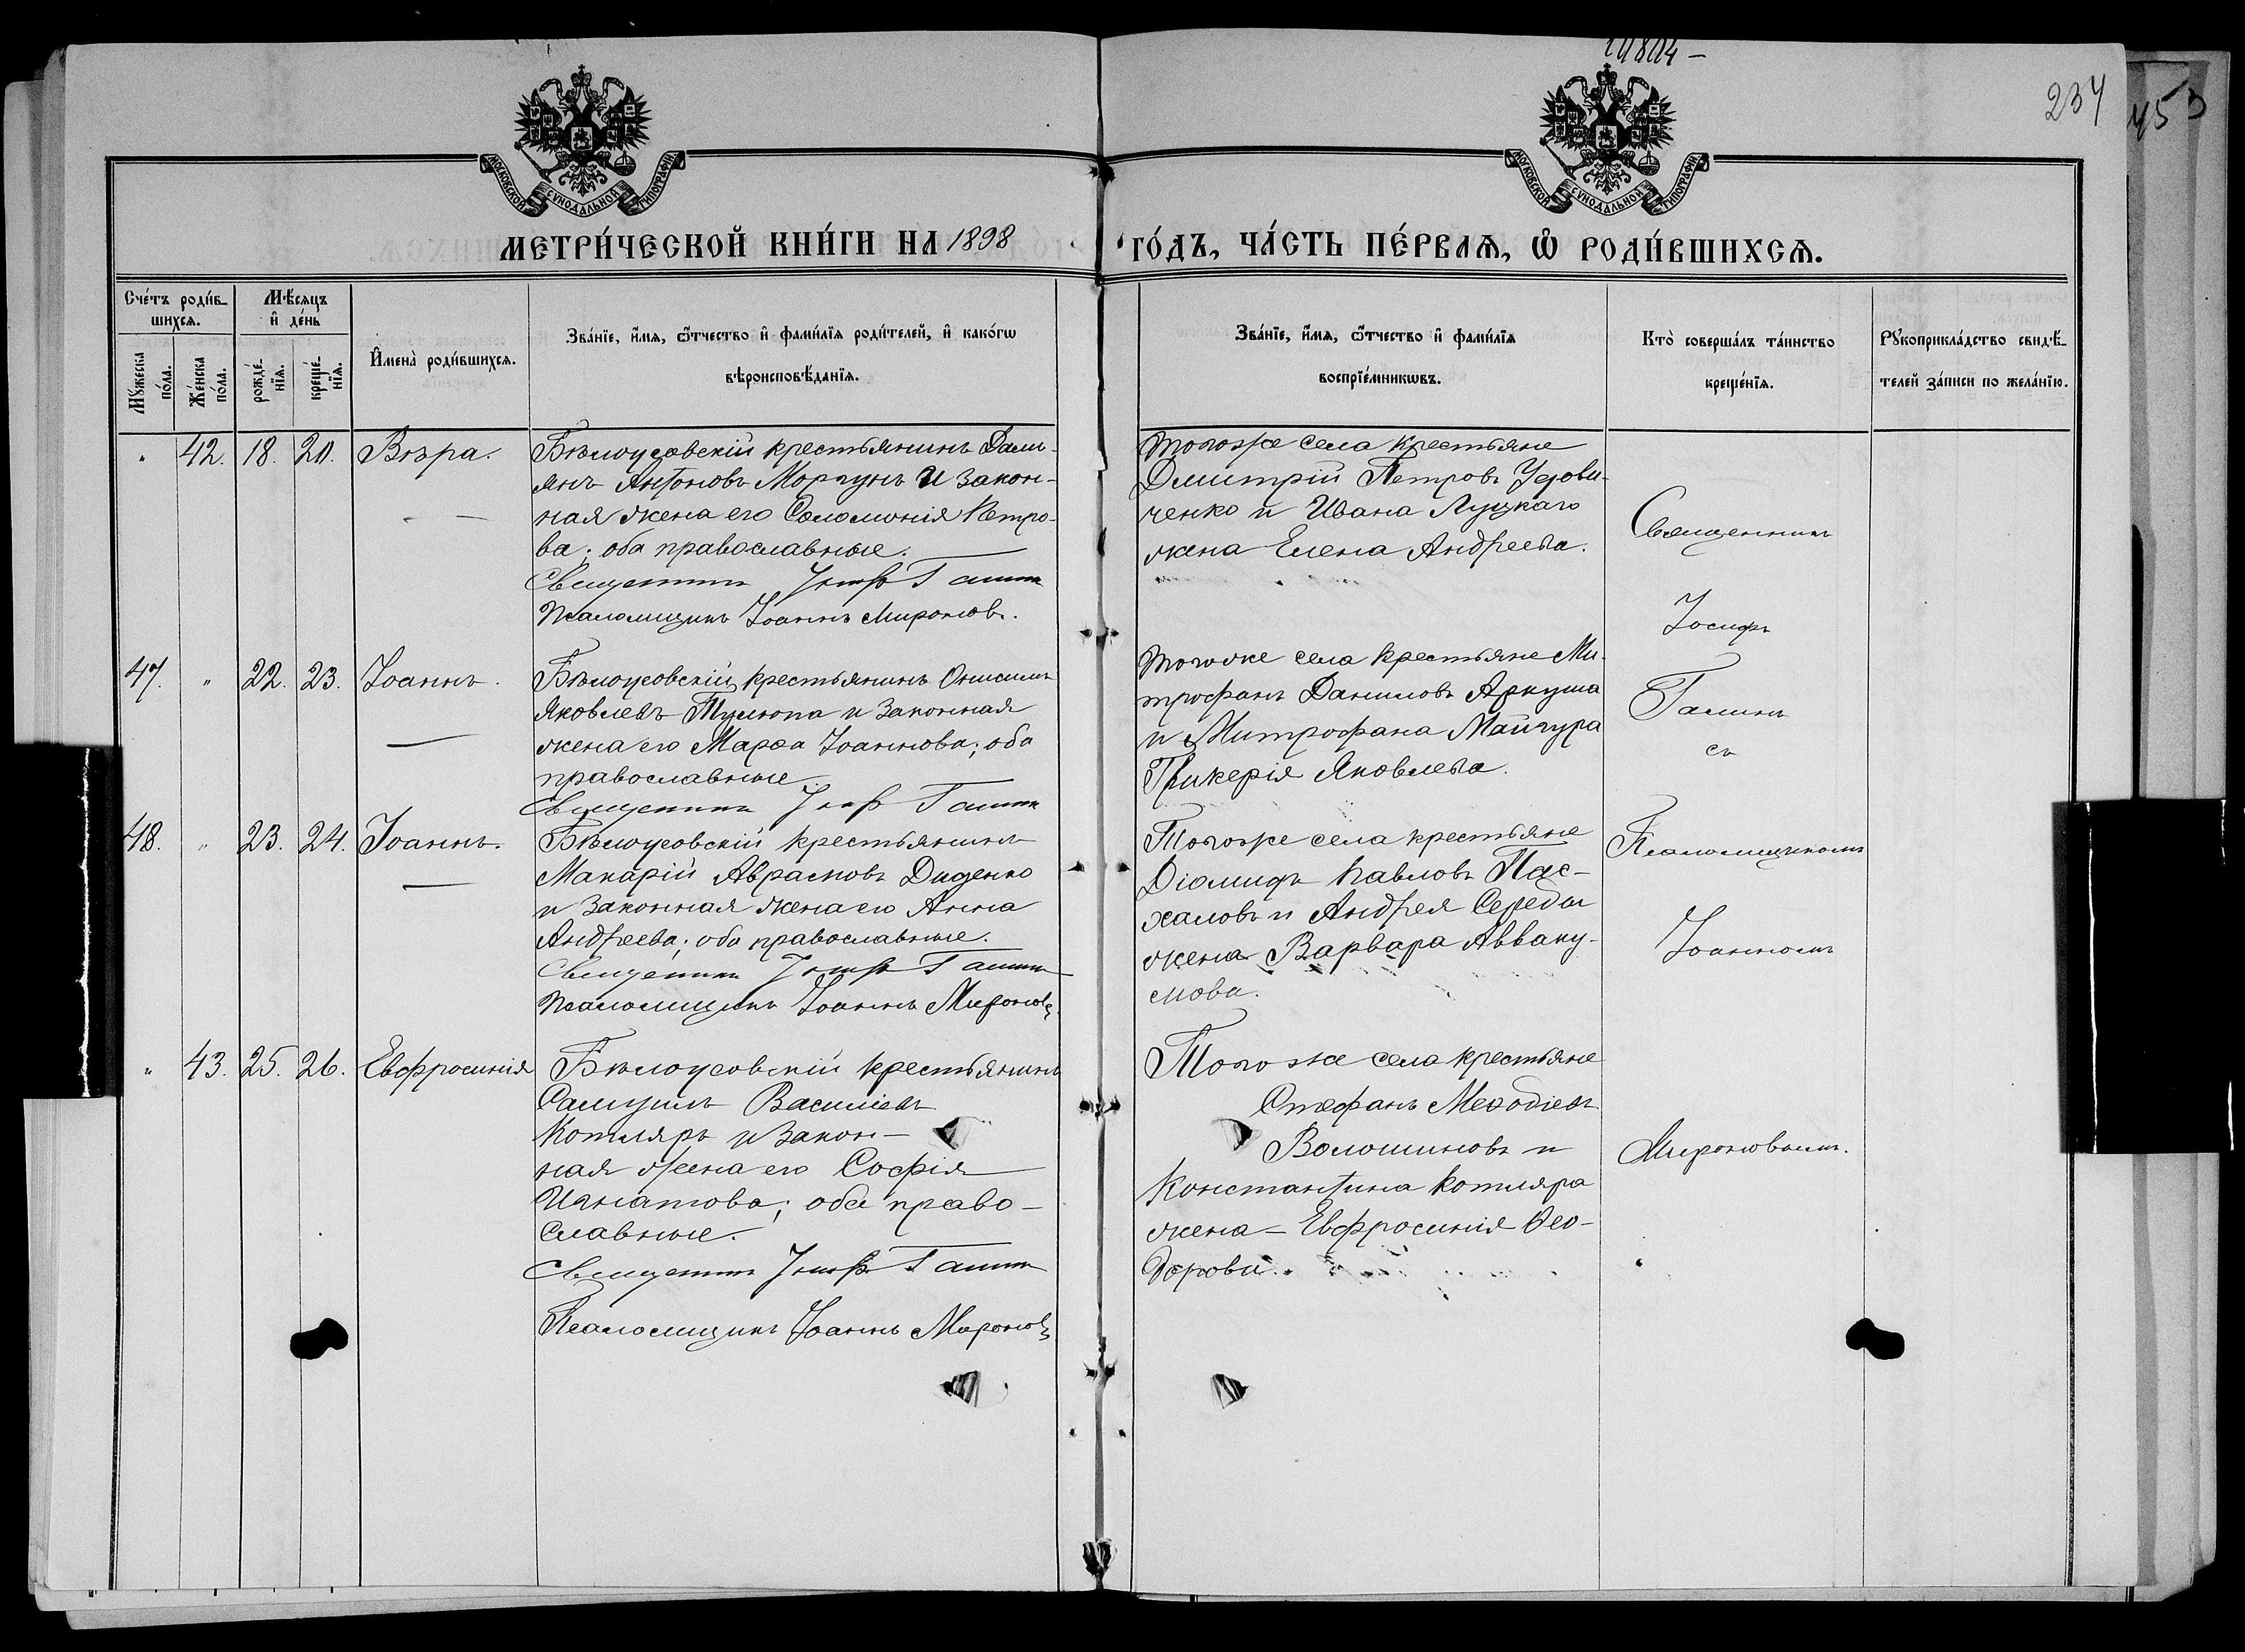 234
453
МОСКОВСКОЙ СѴНОДАЛЬНОЙ ТИПОГРАФІИ
МОСКОВСКОЙ СѴНОДАЛЬНОЙ ТИПОГРАФІИ
МЕТРИ́ЧЕСКОЙ КНИ́ГИ НА 1898
ГО́ДЪ, ЧА́СТЬ ПЕ́РВАѦ, Ѡ҆ РОДИ́ВШИХСѦ.
Сче́тъ роди́в-
шихсѧ.
Мꙋ́жеска
по́ла.
Же́нска
по́ла.
Мѣ́сѧцъ
и҆ де́нь
рожде́-
нїѧ.
креще́-
нїѧ.
И҆мена̀ роди́вшихсѧ.
Зва́нїе, и҆́мѧ, ѻ҆́тчество и҆ фами́лїѧ роди́телей, и҆ како́гѡ
вѣроисповѣ́данїѧ.
Зва́нїе, и҆́мѧ, ѻ҆́тчество и҆ фами́лїѧ
воспрїе́мникѡвъ.
Кто̀ соверша́лъ та́инство
креще́нїѧ.
Рꙋкоприкла́дство свидѣ́-
телей за́писи по жела́нїю.
" 42. 18. 20. Вѣра.
Бѣлоусовскій крестьянинъ Дами-
янъ Антоновъ Моргунъ и закон-
ная жена его Соломонія Петро-
ва; оба православные.
Священникъ Іосифъ Галинъ
Псаломщикъ Іоаннъ Мироновъ.
Тогоже села крестьяне
Дмитрій Петровъ Удови-
ченко и Ивана Луцкаго
жена Елена Андреева.
47. " 22. 23. Іоаннъ.
Бѣлоусовскій крестьянинъ Онисимъ
Яковлевъ Тулюпа и законная
жена его Марѳа Іоаннова; оба
православные.
Священникъ Іосифъ Галинъ
Тогоже села крестьяне Ми-
трофанъ Даниловъ Аркуша
и Митрофана Майгура
Гликерія Яковлева.
48. " 23. 24. Іоаннъ.
Бѣлоусовскій крестьянинъ
Макарій Аврамовъ Диденко
и законная жена его Анна
Андреева; оба православные.
Священникъ Іосифъ Галинъ
Псаломщикъ Іоаннъ Мироновъ.
Тогоже села крестьяне
Діомидъ Павловъ Пас-
халовъ и Андрея Середы
жена Варвара Авваку-
мова.
" 43. 25. 26. Евфросинія
Бѣлоусовскій крестьянинъ
Самуилъ Василіевъ
Котляръ и закон-
ная жена его Софія
Игнатова; оба право-
славные.
Священникъ Іосифъ Галинъ
Псаломщикъ Іоаннъ Мироновъ
Тогоже села крестьяне
Стефанъ Меѳодіевъ
Волошиновъ и
Константина Котляра
жена - Евфросинія Ѳео-
дорова.
Священникъ
Іосифъ
Галинъ
съ
Псаломщикомъ
Іоанномъ
Мироновымъ.